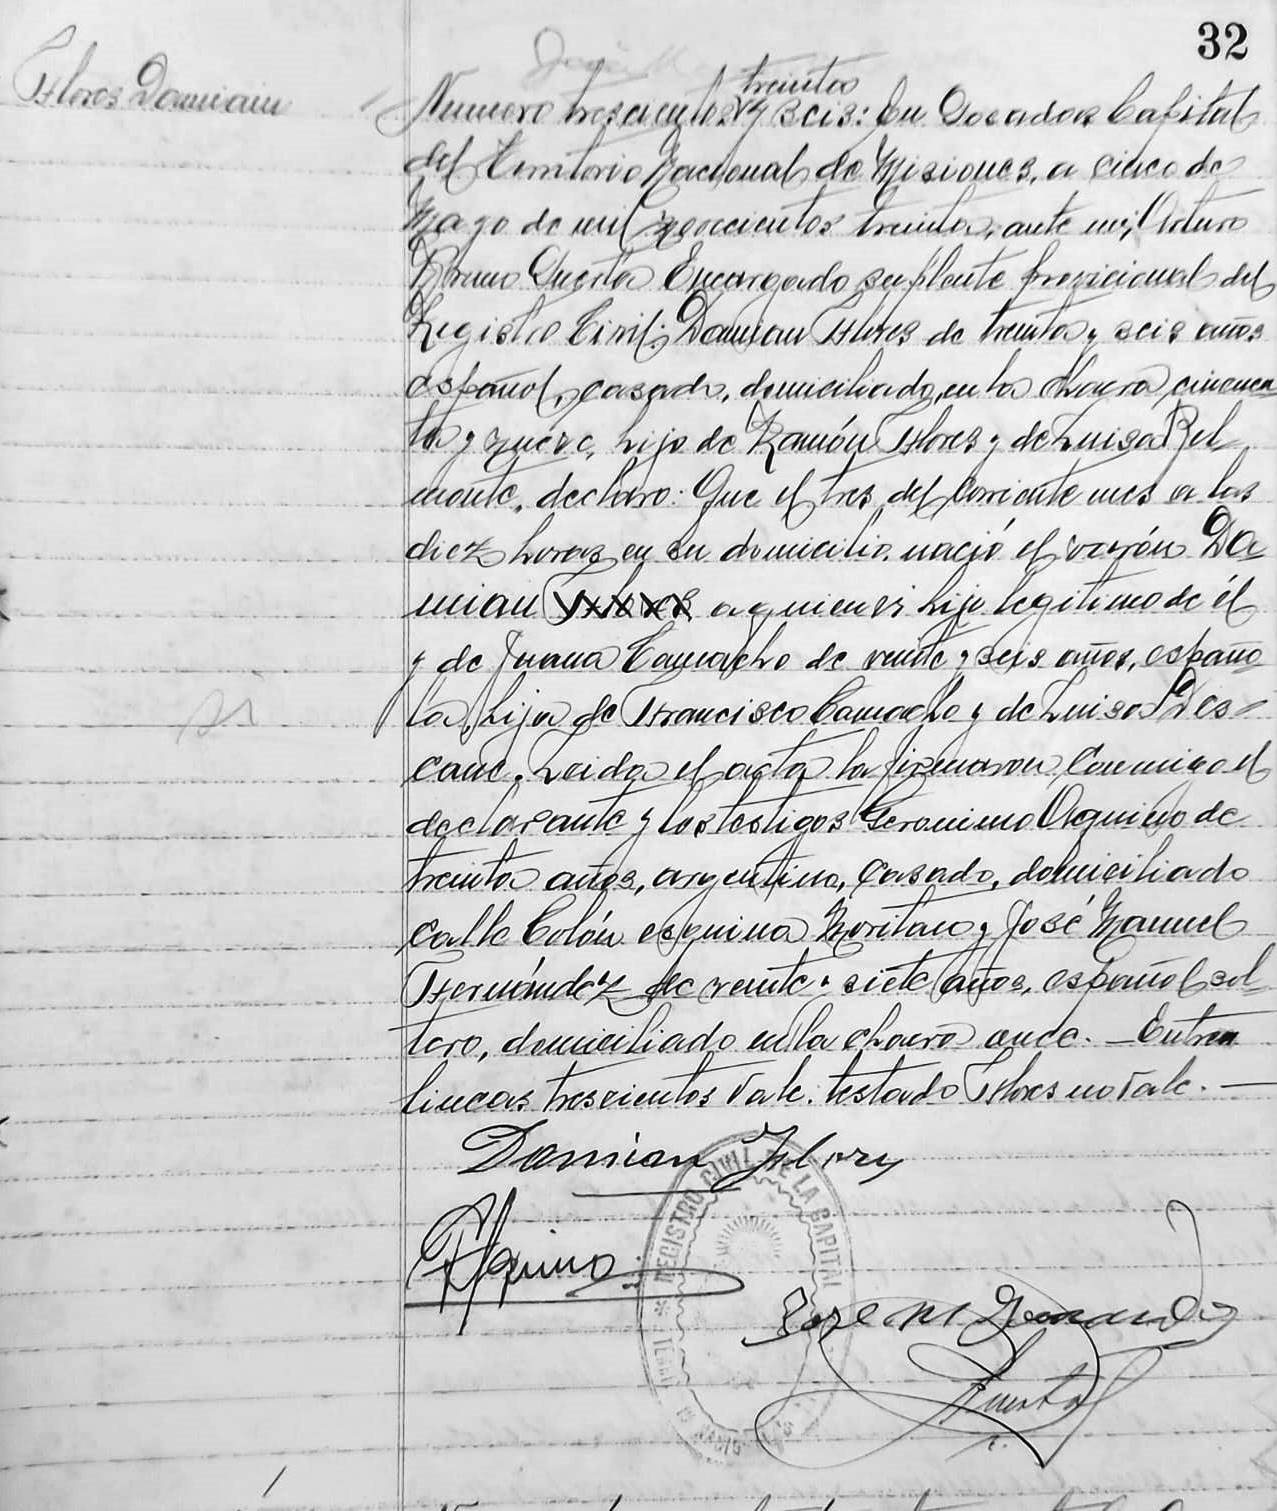 32
Flores Damian
treinta
Numero trescientos y seis: En Posadas Capital
del Territorio Nacional de Misiones, a cinco de
Mayo de mil novecientos treinta, ante mi, Arturo
Bruno Querta Encargado suplente provicional del
Registro Civil: Damian Flores de treinta y seis años
español, casado, domiciliado, en la chacra cincuen
ta y nueve, hijo de Ramón Flores y de Luisa Bel
monte, declaro: Que el tres del corriente mes a las
diez horas en su domicilio, nació el varón Da
mian Flores a quien es hijo legitimo de él
y de Juana Camacho de veinte y seis años, españo
la, hija de Francisco Camacho y de Luisa
Leida el acta la firmaron conmigo el
declarante y los testigos Geronimo Aquino de
treinta años, argentino, casado, domiciliado
calle Colón esquina y José Manuel
Hernández de veinte y siete años, español sol
tero, domiciliado en la chacra once. - Entre
lineas trescientos vale. testado Flores no vale. -
Damian Flores
Aquino
REGISTRO CIVIL DE LA CAPITAL
Jose M Hernandez